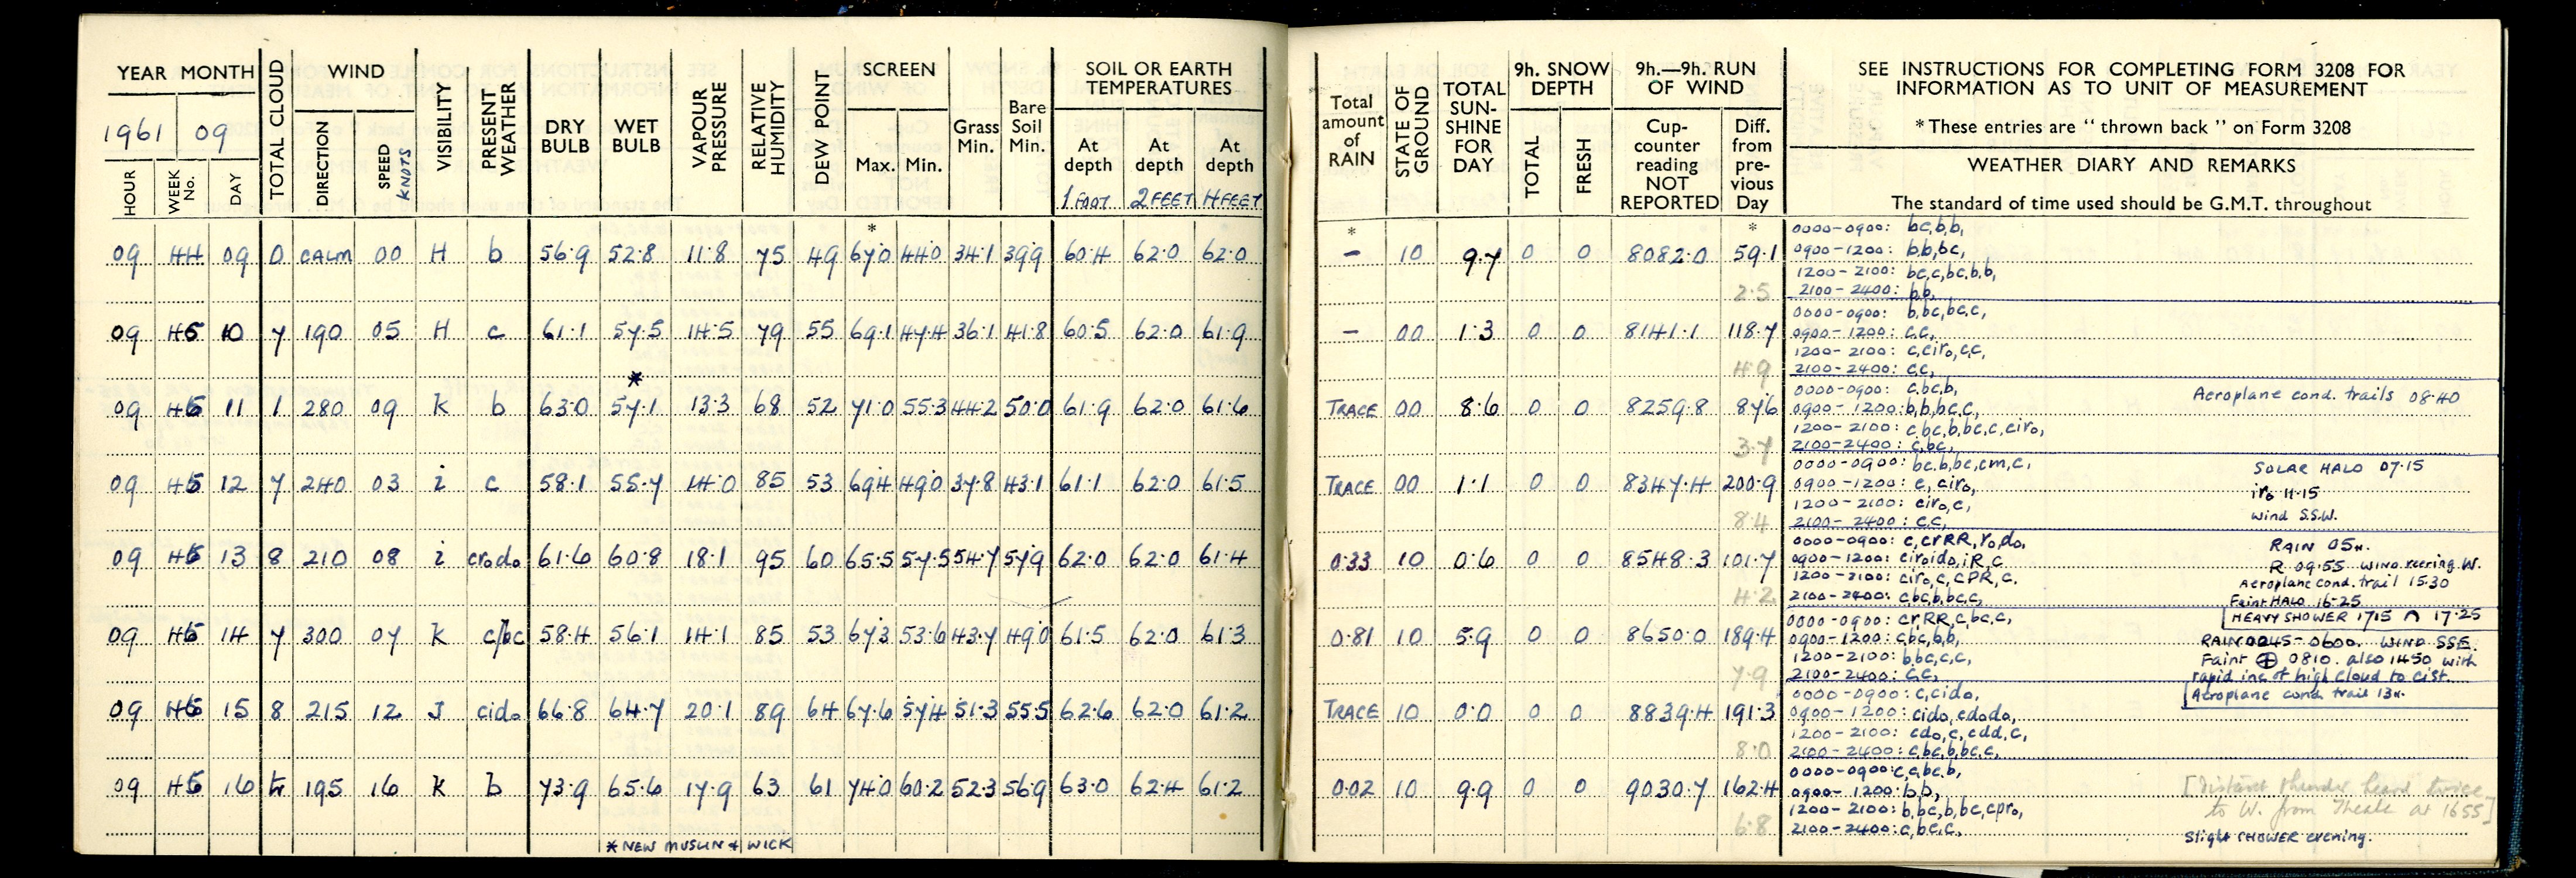 YEAR MONTH
1961 09
HOUR WEEK No. DAY TOTAL CLOUD WIND DIRECTION SPEED KNOTS VISIBILITY PRESENT WEATHER DRY BULB WET BULB VAPOUR PRESSURE RELATIVE HUMIDITY DEW POINT SCREEN Max. Min. Grass Min. Bare Soil Min. SOIL OR EARTH TEMPERATURES At depth 1 FOOT At depth 2 FEET At depth 4 FEET
*
09 44 09 0 CALM 00 4 b 56.9 52.8 11.8 75 49 67.0 44.0 34.1 39.9 60.4 62.0 62.0
09 45 10 7 190 05 4 c 61.1 57.5 14.5 79 55 69.1 47.4 36.1 41.8 60.5 62.0 61.9
*
09 45 11 1 280 09 k b 63.0 57.1 13.3 68 52 71.0 55.3 44.2 50.0 61.9 62.0 61.6
09 45 12 7 240 03 i c 58.1 55.7 14.0 85 53 69.4 49.0 37.8 43.1 61.1 62.0 61.5
09 45 13 8 210 08 i crodo 61.6 60.8 18.1 95 60 65.5 57.5 54.7 57.9 62.0 62.0 61.4
09 45 14 7 300 07 k c/bc 58.4 56.1 14.1 85 53 67.3 53.6 43.7 49.0 61.5 62.0 61.3
09 45 15 8 215 12 J cido 66.8 64.7 20.1 89 64 67.6 57.4 51.3 55.5 62.6 62.0 61.2
09 45 16 195 16 k b 73.9 65.6 17.9 63 61 74.0 60.2 52.3 56.9 63.0 62.4 61.2
* NEW MUSLIN & WICK
Total amount of RAIN STATE OF GROUND TOTAL SUN-SHINE FOR DAY 9h. SNOW DEPTH TOTAL FRESH 9h.—9h. RUN OF WIND Cup-counter reading NOT REPORTED Diff. from pre-vious Day
SEE INSTRUCTIONS FOR COMPLETING FORM 3208 FOR
INFORMATION AS TO UNIT OF MEASUREMENT
* These entries are "thrown back" on Form 3208
WEATHER DIARY AND REMARKS
The standard of time used should be G.M.T. throughout
* *
0000-0900: bc,b,b,
– 10 9.7 0 0 8082.0 59.1 0900-1200: b,b,bc,
1200-2100: bc,c,bc,b,b,
2.5 2100-2400: b,b,
0000-0900: b,bc,bc,c,
– 00 1.3 0 0 8141.1 118.7 0900-1200: c,c,
1200-2100: c,ciro,c,c,
4.9 2100-2400: c,c,
0000-0900: c,bc,b, Aeroplane cond. trails 08.40
TRACE 00 8.6 0 0 8259.8 87.6 0900-1200: b,b,bc,c,
1200-2100: c,bc,b,bc,c,ciro,
3.7 2100-2400: c,bc,
0000-0900: bc,b,bc,cm,c, SOLAR HALO 07.15
TRACE 00 1.1 0 0 8347.4 200.9 0900-1200: c,ciro, iro 11.15
1200-2100: ciro,c, Wind S.S.W.
8.4 2100-2400: c,c,
0000-0900: c,crRR,ro,do, RAIN 05H.
0.33 10 0.6 0 0 8548.3 101.7 0900-1200: ciroido,iR,c R 09.55 WIND veering W.
1200-2100: ciro,c,cPR,c. Aeroplane cond. trail 15.30
4.2 2100-2400: c,bc,b,bc,c, Faint HALO 16.25
0000-0900: cr,RR,c,bc,c, HEAVY SHOWER 1715 ∩ 17.25
0.81 10 5.9 0 0 8650.0 189.4 0900-1200: c,bc,b,b, RAIN 0245-0600. WIND SSE.
1200-2100: b,bc,c,c, Faint ⊕ 0810. also 1450 with
7.9 2100-2400: c,c, rapid inc of high cloud to cist.
0000-0900: c,cido, Aeroplane cond. trail 13H.
TRACE 10 0.0 0 0 8839.4 191.3 0900-1200: cido,cdodo,
1200-2100: cdo,c,cdd,c,
8.0 2100-2400: c,bc,b,bc,c,
0000-0900: c,c,bc,b,
0.02 10 9.9 0 0 9030.7 162.4 0900-1200: b,b, [Distant thunder heard twice
1200-2100: b,bc,b,bc,cpro, to W. from Theale at 1655]
6.8 2100-2400: c,bc,c,
Slight SHOWER evening.